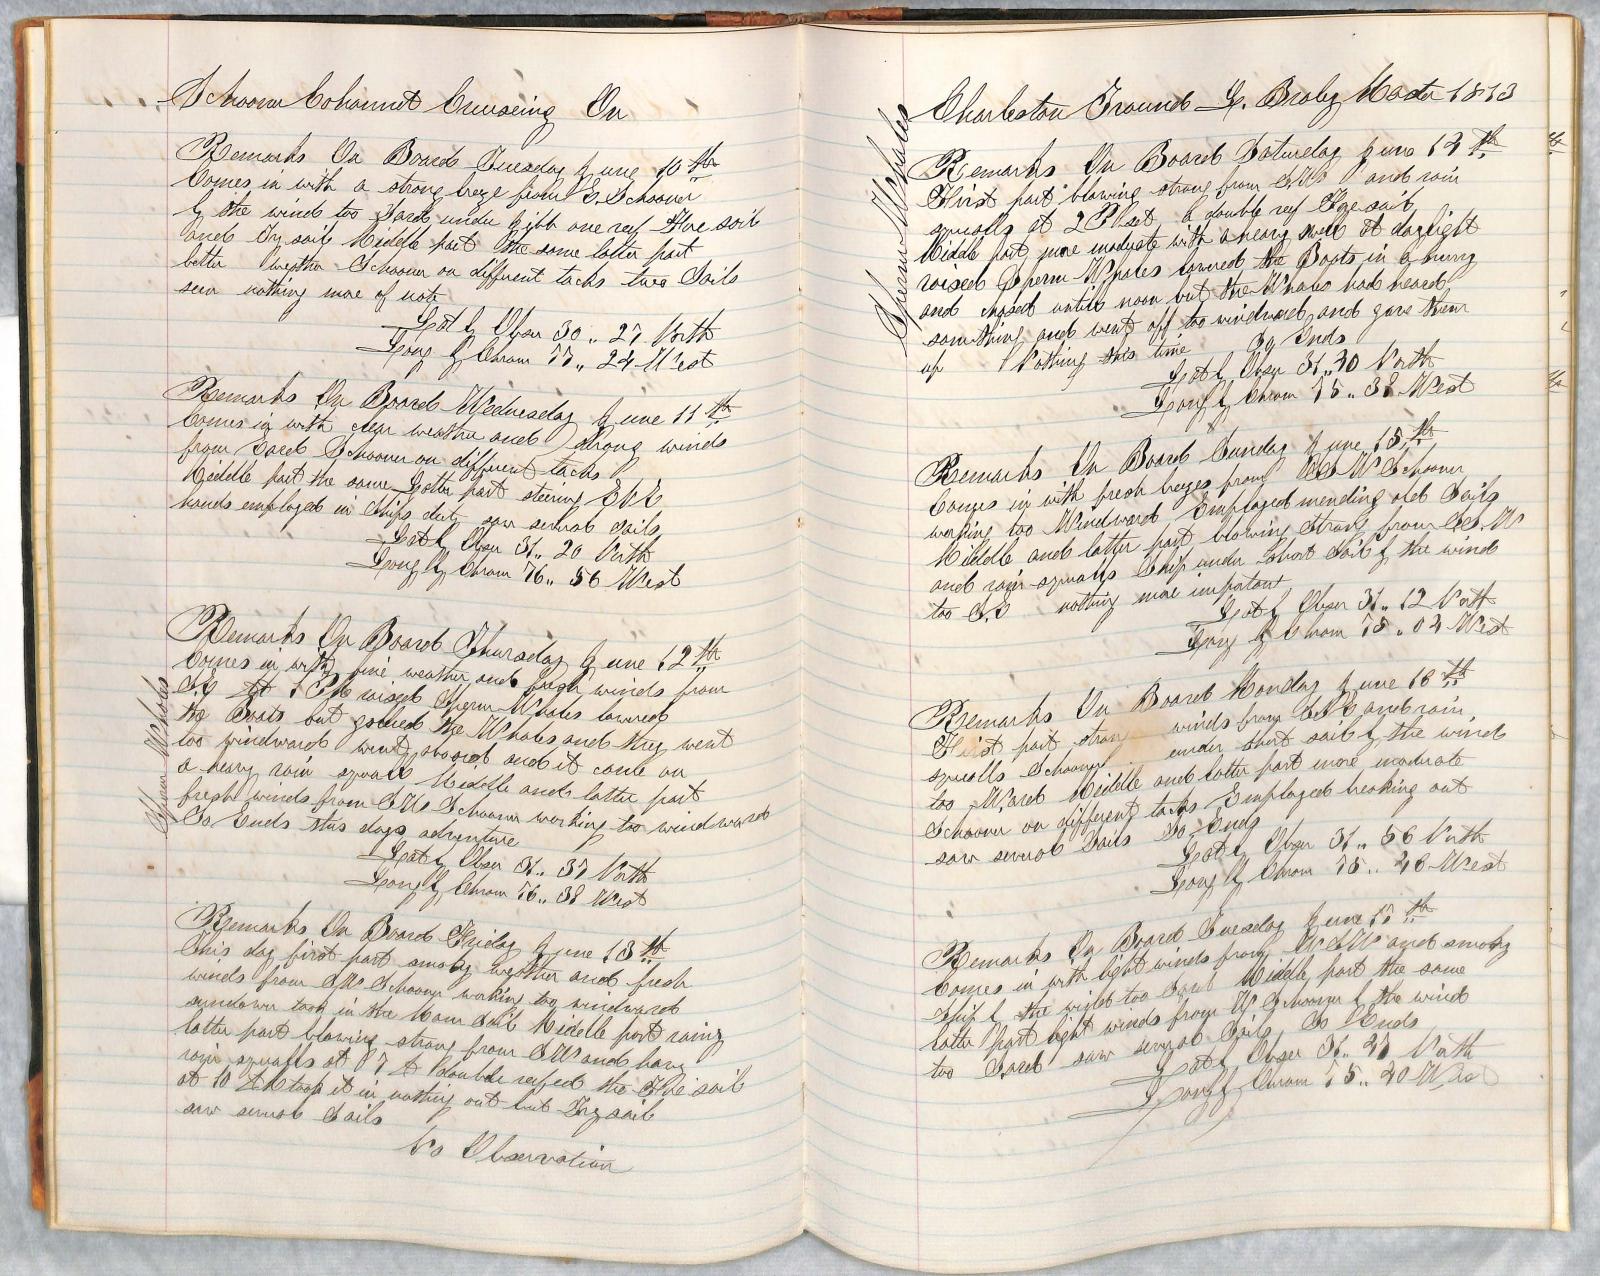 Schooner Cohannet Cruiseing On
Remarks On Board Tuesday June 10th
Comes in with a strong breze from E. Schooner
by the wind too Sard under gibb one reef Fore sail
and Trysail Middle part the same latter part
better weather Schooner on different tacks two Sails
seen nothing more of note
Lat by Obser 30 .. 27 North
Long by Chrom 77 .. 24 West
Remarks On Board Wednesday June 11th
Comes in with clear weather and strong winds
from Eard Schooner on different tacks
Middle part the same Latter part steering
hands employed in Ships duty saw serval sails
Lat by Obser 31 .. 20 North
Long by Chrom 76 .. 56 West
Remarks On Board Thursday June 12th
Comes in with fine weather and fresh winds from
At 1 PM raised Sperm Whales lowred
the Boats but gallied the Whales and they went
too windward went aboard and it came on
a heavy rain squall Middle and latter part
fresh winds from SW Schooner working too windward
So Ends this days adventure
Lat by Obser 31 .. 37 North
Long by Chrom 76 .. 38 West
Sperm Whales
Remarks On Board Friday June 13th
This day first part smoky weather and fresh
winds from SW Schooner working too windward
sundown took in the Main Sail Middle part rainy
latter part blowing strong from SW and heavy
rain squalls at 7 A double reefed the Fore sail
at 10 A took it in nothing out but Try sail
saw serval Sails
No Observation
Charleston Ground L. Braley Master 1873
Sperm Whales
Remarks On Board Saturday June 14th
First part blowing strong from SW and rain
squalls at 2 P set a double reef Fore sail
Middle part more moderate with a heavy swell At daylight
raised Sperm Whales lowred the Boats in a hurry
and chased untill noon but the Whales had heard
something and went off too windward and gave them
up Nothing this time So Ends
Lat by Obser 31 .. 30 North
Long by Chrom 75 .. 38 West
Remarks On Board Sunday June 15th
Comes in with fresh brezes from W Schooner
working too Windward Employed mending old Sails
Middle and latter part blowing Strong from
and rain squalls Ship under Short Sail by the wind
too nothing more important
Lat by Obser 31 .. 12 North
Long by Chrom 75 .. 04 West
Remarks On Board Monday June 16th
First part strong winds from and rain
squalls Schooner under short sail by the wind
too Ward Middle and latter part more moderate
Schooner on different tacks Employed breaking out
saw serval Sails So Ends
Lat by Obser 31 .. 56 North
Long by Chrom 75 .. 26 West
Remarks On Board Tuesday June 17th
Comes in with light winds from WSW and smoky
Ship by the wind too Sard Middle part the same
latter part light winds from W Schooner by the wind
too Sard saw several Sails So Ends
Lat by Obser 31 .. 27 North
Long by Chrom 75 .. 40 West